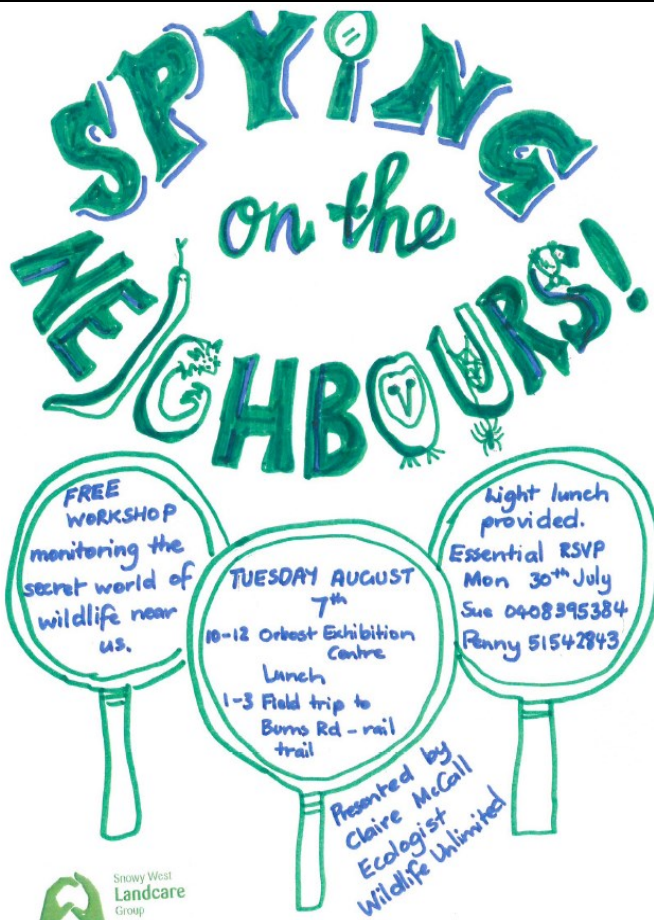 SPYiNG
on the
NEIGHBOURS!
FREE
WORKSHOP
monitoring the
secret world of
wildlife near
us.
TUESDAY AUGUST
7th
10-12 Orbost Exhibition
Centre
Lunch
1-3 Field trip to
Burns Rd - rail
trail
Light lunch
provided.
Essential RSVP
Mon 30th July
Sue 0408395384
Penny 51542843
Presented by
Claire McCall
Ecologist
Wildlife Unlimited
Snowy West
Landcare
Group